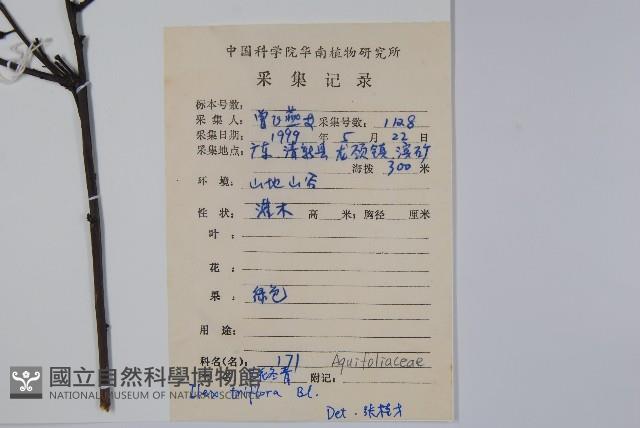 中国科学院华南植物研究所
采集记录
标本号数:
采集人: 曾飞燕 采集号数: 1128
采集日期: 1999 年 5 月 22 日
采集地点: 广东 清新县 龙颈镇
海拨 300 米
环境: 山地山谷
性状: 灌木 高 米; 胸径 厘米
叶:
花:
果: 绿色
用途:
科名(名): 171 Aquifoliaceae
冬青 附记:
Ilex triflora Bl.
Det. 张桂才
國立自然科學博物館
NATIONAL MUSEUM OF NATURAL